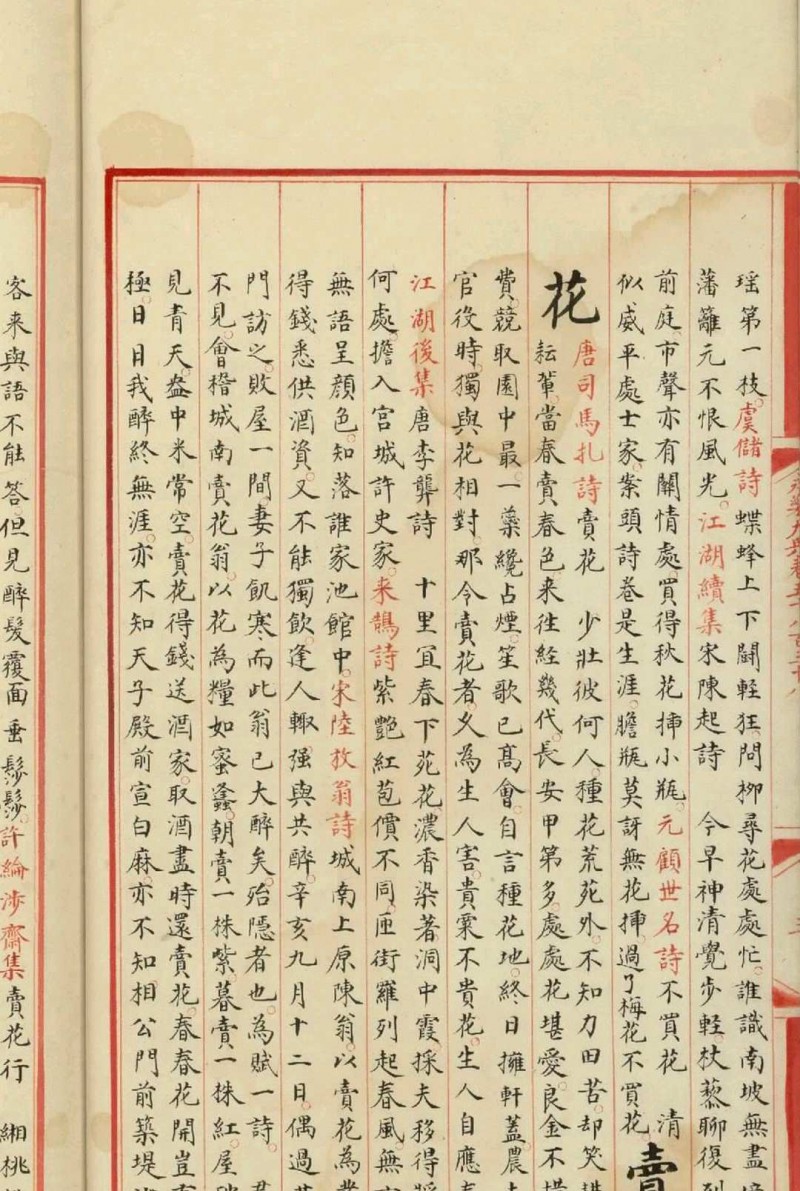 瑶第一枝虞儔詩蝶蜂上下鬪輕狂問栁尋花處處忙誰識南坡無盡
藩籬元不恨風光江湖續集宋陳起詩 今早神清覺步輕杖藜聊復到
前庭市聲亦有關情處買得秋花揷小瓶元顧世名詩不買花 清
似咸平處士家案頭詩卷是生涯膽瓶莫訝無花揷過了梅花不買花 賣
花 唐司馬扎詩賣花 少壯彼何人種花荒苑外不知力田苦却笑
耘輩當春賣春色来往經幾代長安甲第多處處花堪愛良金不
費競取園中最一藥纔占煙笙歌已髙會自言種花地終日擁軒蓋農
官役時獨與花相對那今賣花者久為生人害貴粟不貴花生人自應
江湖後集唐李龏詩 十里宜春下苑花濃香染著洞中霞採夫移得
何處擔入宫城許史家来鵠詩紫艷紅苞價不同匝街羅列起春風無
無語呈顔色知落誰家池館中宋陸放翁詩城南上原陳翁以賣花為
得錢悉供酒資又不能獨飲逢人輙强與共醉辛亥九月十二日偶過
門訪之敗屋一間妻子飢寒而此翁已大醉矣殆隠者也為賦一詩君
不見會稽城南賣花翁以花為糧如蜜蠭朝賣一株紫暮賣一株紅屋
見青天盎中米常空賣花得錢送酒家取酒盡時還賣花春春花開豈
極日日我醉終無涯亦不知天子殿前宣白麻亦不知相公門前築堤
客来與語不能答但見醉髮覆面垂鬖鬖許綸涉齋集賣花行 緗桃